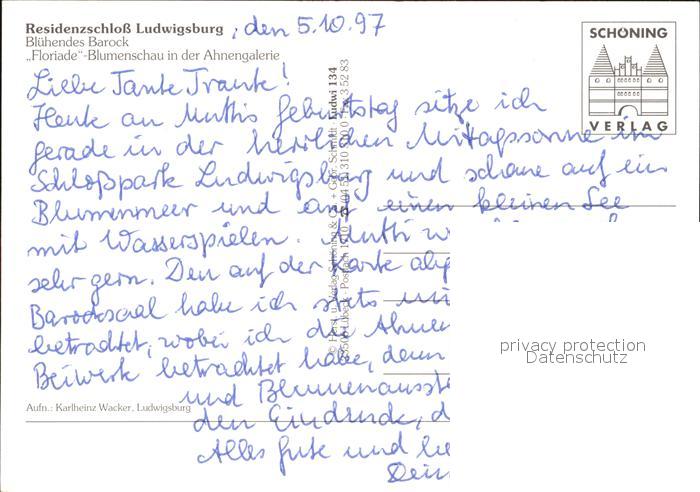 Residenzschloß Ludwigsburg, den 5.10.97
Blühendes Barock
„Floriade“-Blumenschau in der Ahnengalerie
SCHÖNING
VERLAG
Liebe Tante Traute!
Heute an Muttis Geburtstag sitze ich
gerade in der herrlichen Mittagssonne im
Schloßpark Ludwigsburg und schaue auf ein
Blumenmeer und auf einen kleinen See
mit Wasserspielen. Mutti
sehr gern. Den auf der Karte
Barocksaal habe ich stets
betrachtet, wobei ich die Ahnen
Beiwerk betrachtet habe, denn
und
den Eindruck, d
Alles Gute und
Dein
Aufn.: Karlheinz Wacker, Ludwigsburg
Schöning & Co + Gebr. Schmidt Ludwi 134
Lübeck
privacy protection
Datenschutz